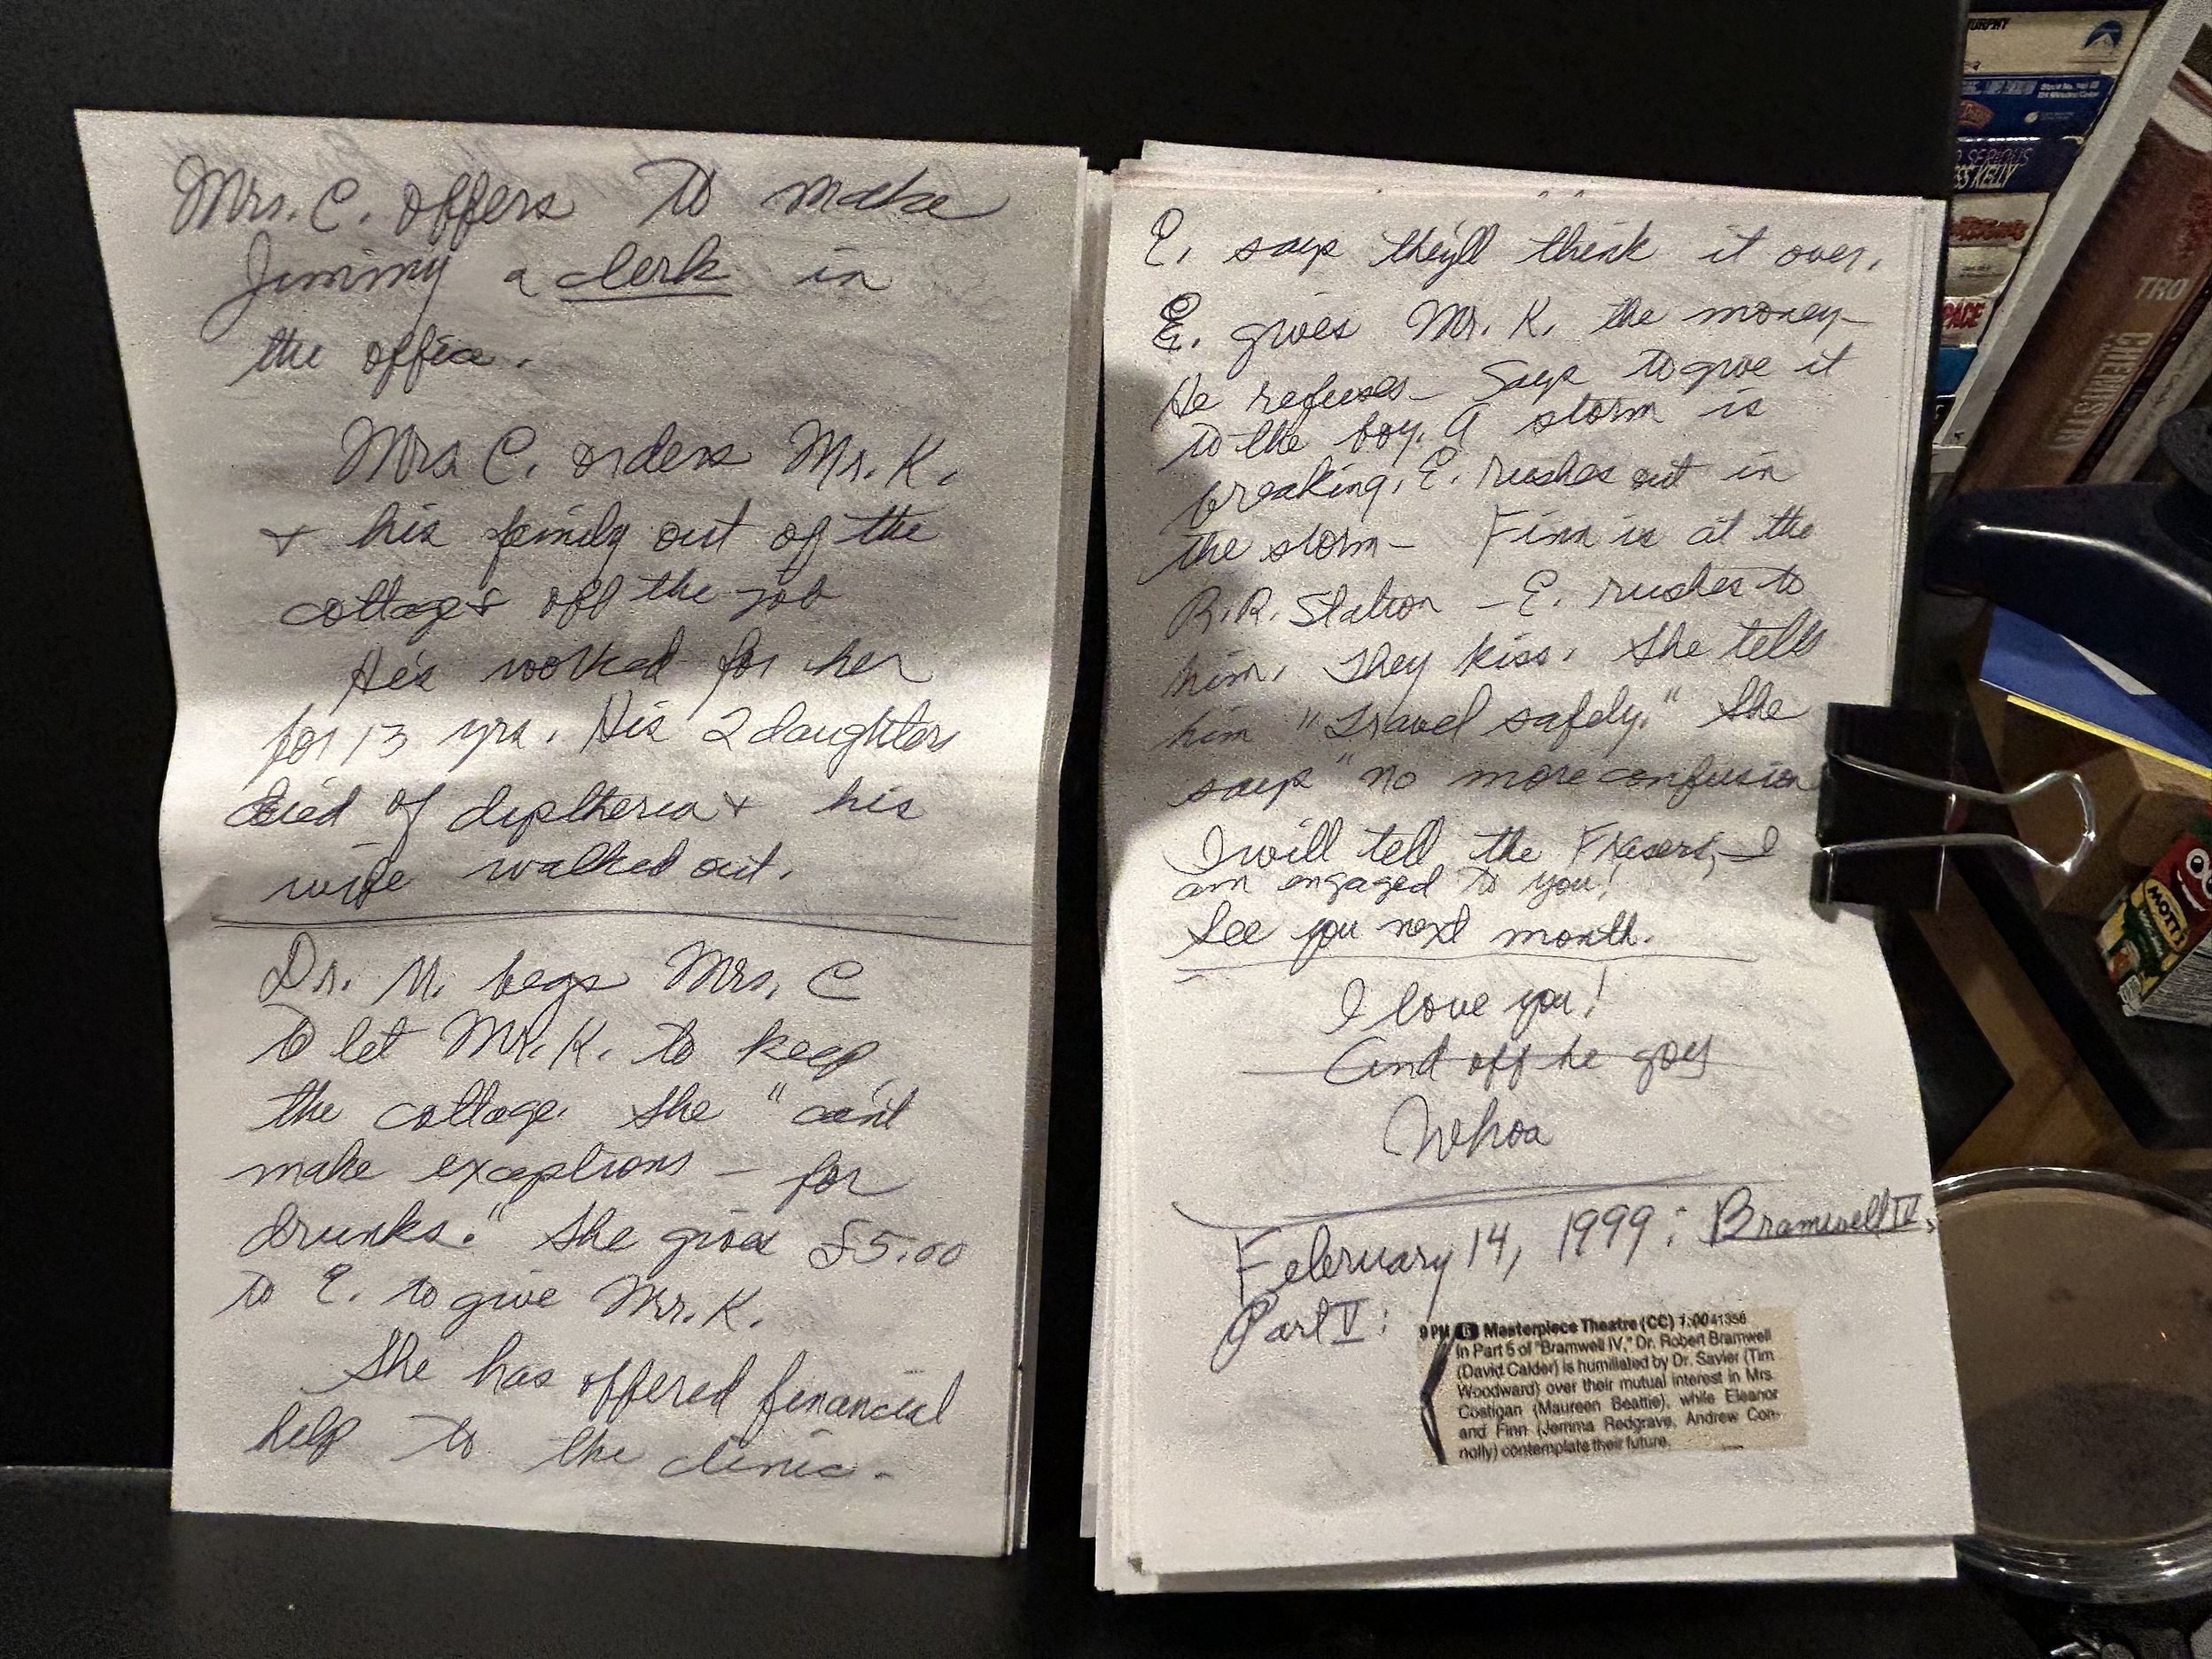 Mrs. C. offers to make
Jimmy a clerk in
the office.
Mrs C. orders Mr. K.
+ his family out of the
cottage & off the job
He's worked for her
for 13 yrs. His 2 daughters
died of diptheria + his
wife walked out.
Dr. M. begs Mrs. C
to let Mr. K. to keep
the cottage. She "can't
make exceptions – for
drunks." She gives £5.00
to E. to give Mr. K.
She has offered financial
help to the clinic.
E. says they'll think it over.
E. gives Mr. K. the money–
He refuses – Says to give it
to the boy. A storm is
breaking. E. rushes out in
the storm – Finn is at the
R.R. Station – E. rushes to
him. They kiss. She tells
him "Travel safely." She
says "No more confusion
I will tell the Frasers, I
am engaged to you!
See you next month.
I love you!
And off he goes
Whoa
February 14, 1999: Bramwell IV,
Part V:
9 PM 6 Masterpiece Theatre (CC) 1:00 41356
In Part 5 of "Bramwell IV," Dr. Robert Bramwell
(David Calder) is humiliated by Dr. Savier (Tim
Woodward) over their mutual interest in Mrs.
Costigan (Maureen Beattie), while Eleanor
and Finn (Jemma Redgrave, Andrew Con-
nolly) contemplate their future.
URPHY
SERIOUS
SS KELLY
PACE
TRO
CHEMISTRY
MOTT'S